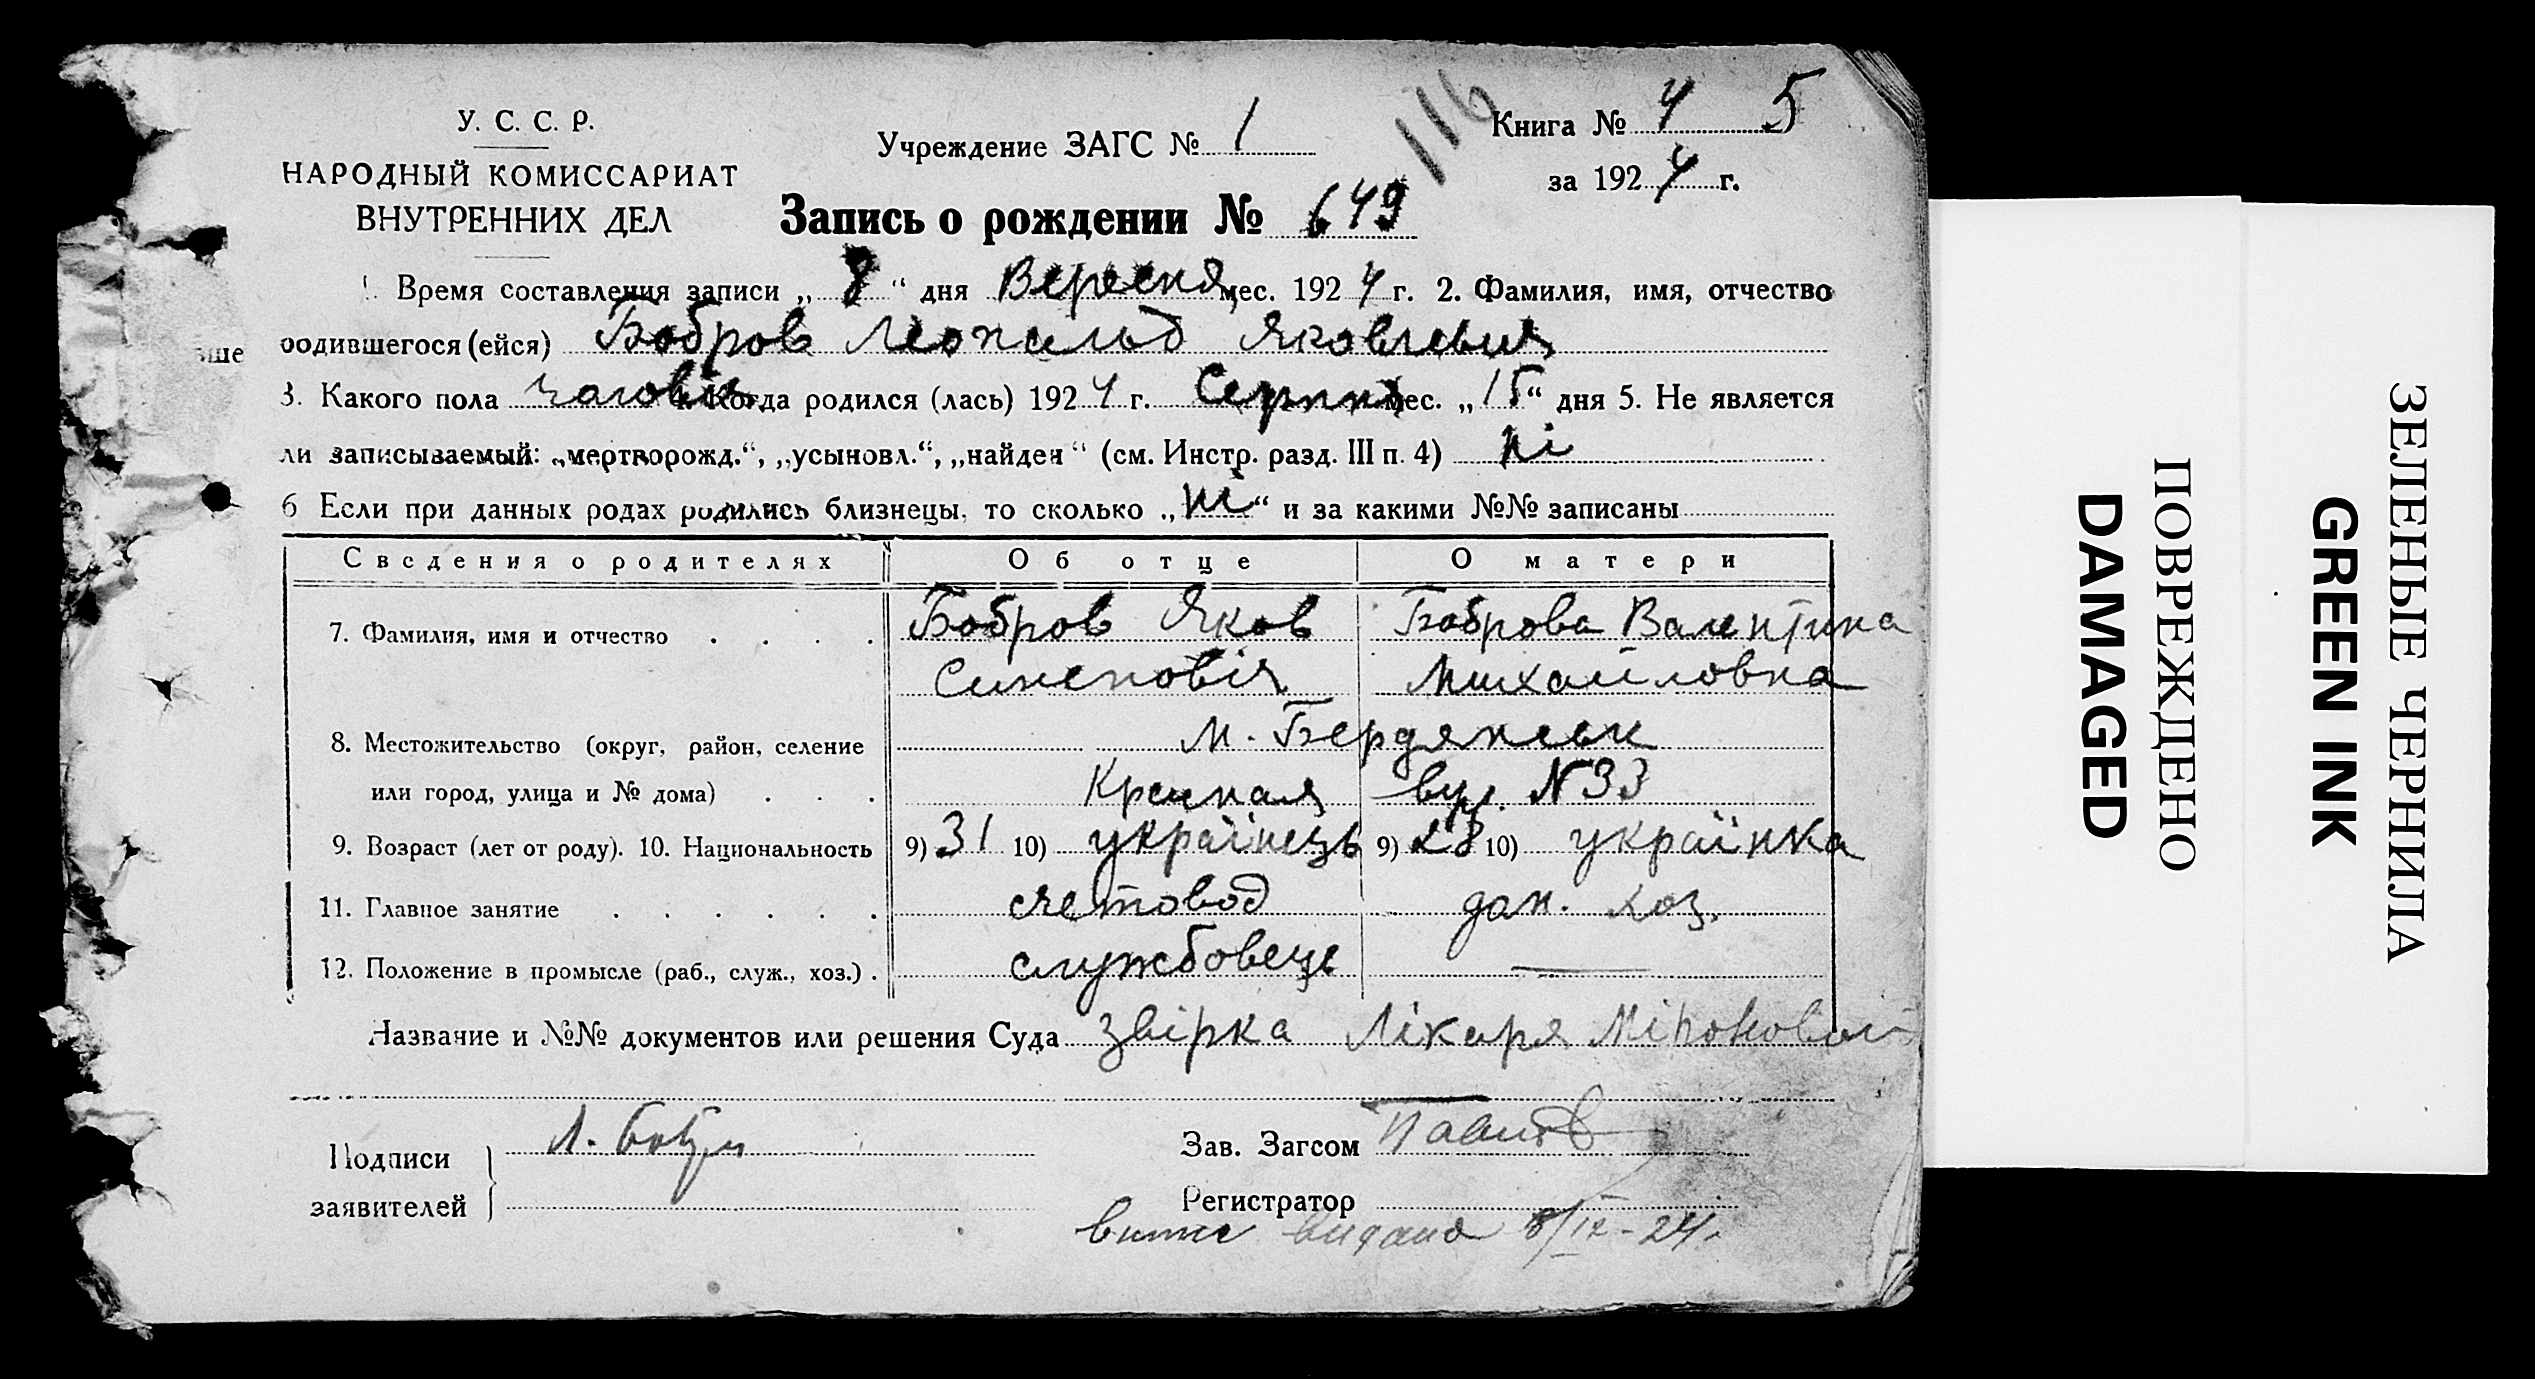 У. С. С. Р.
НАРОДНЫЙ КОМИССАРИАТ
ВНУТРЕННИХ ДЕЛ
Учреждение ЗАГС № 1
116
Книга № 4 5
за 1924 г.
Запись о рождении № 649
Время составления записи „8“ дня Вересня мес. 1924 г. 2. Фамилия, имя, отчество
родившегося (ейся) Бобров Леопольд Яковлевич
3. Какого пола чоловік 4. Когда родился (лась) 1924 г. Серпня мес. „15“ дня 5. Не является
ли записываемый: „мертворожд.“, „усыновл.“, „найден“ (см. Инстр. разд. III п. 4) ні
6 Если при данных родах родились близнецы, то сколько „ні“ и за какими №№ записаны
Сведения о родителях Об отце О матери
7. Фамилия, имя и отчество Бобров Яков Боброва Валентина
Михайловна
8. Местожительство (округ, район, селение м. Бердянськ
или город, улица и № дома) вул. N 33
9. Возраст (лет от роду). 10. Национальность 9) 31 10) українець 9) 28 10) українка
11. Главное занятие счетовод дом. хоз.
12. Положение в промысле (раб., служ., хоз.) службовець —
Название и №№ документов или решения Суда звірка Лікаря
Подписи
заявителей
Л. Бобров
Зав. Загсом
Регистратор
видано 8/IX-24.
ЗЕЛЕНЫЕ ЧЕРНИЛА
GREEN INK
ПОВРЕЖДЕНО
DAMAGED